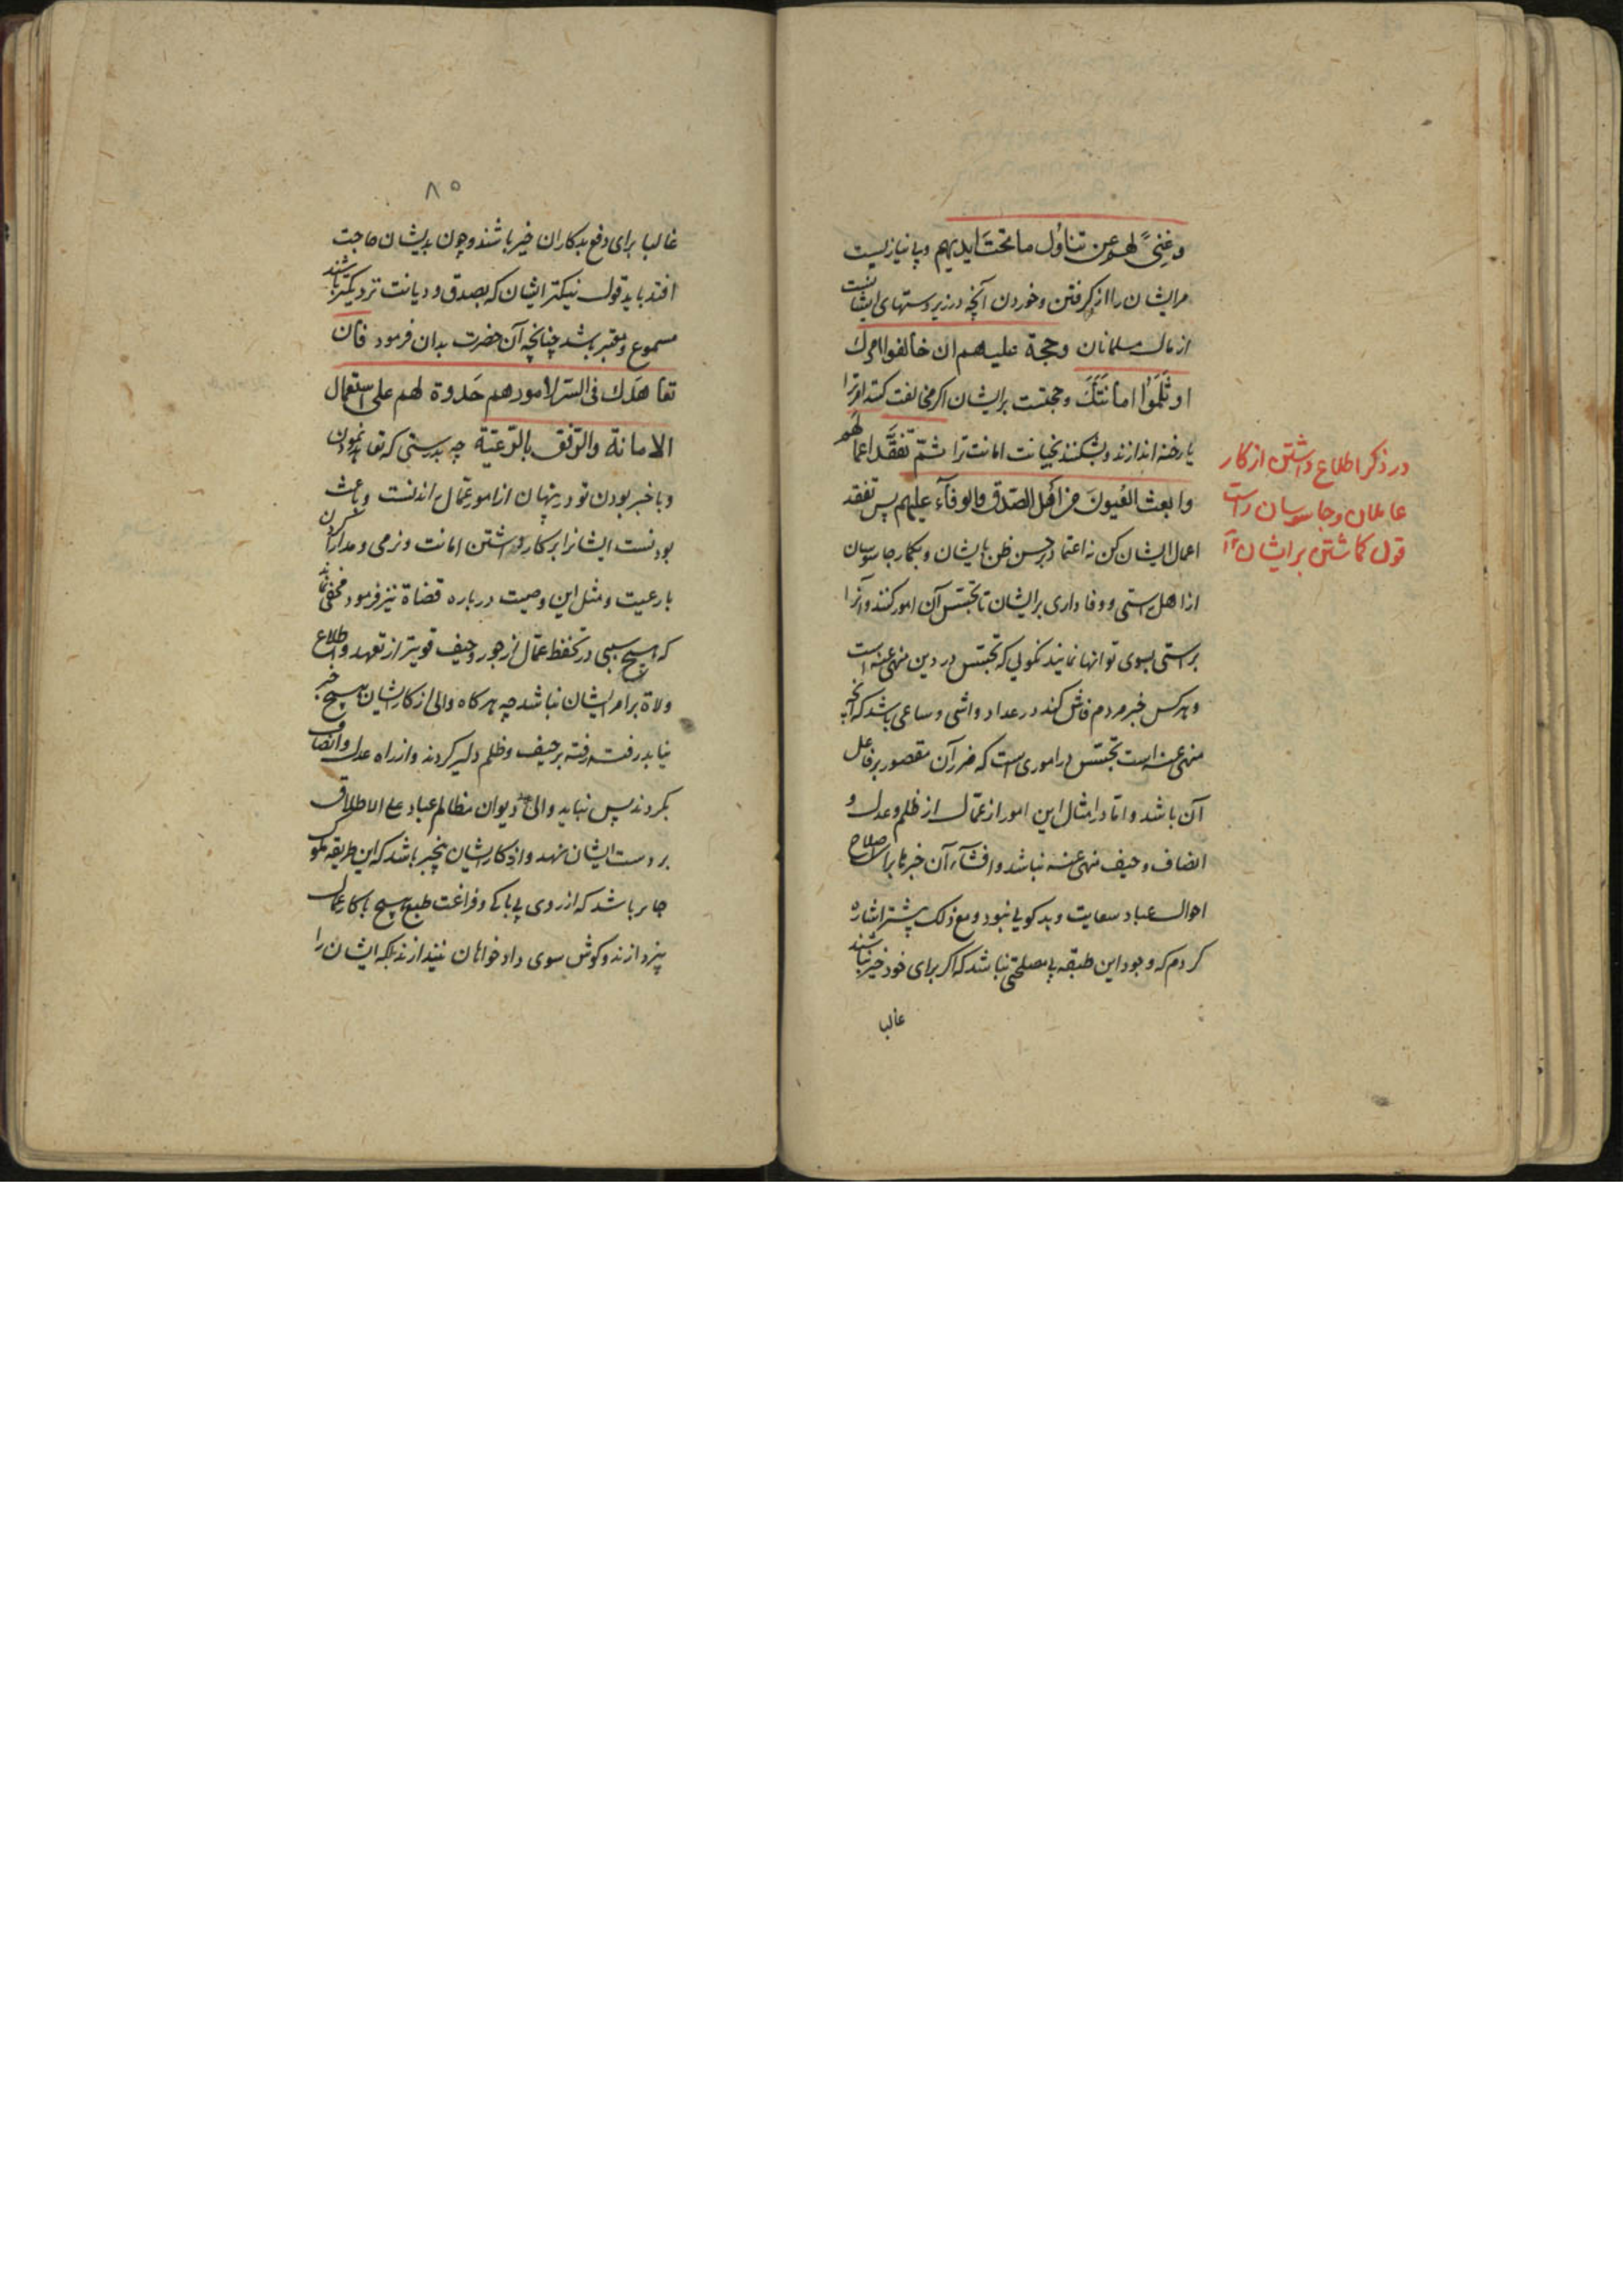 وغنیً لهم عن تناوُل ما تحتَ ایدیهم و بی نیازیست
مر ایشان را از کرفتن و خوردن آنچه در زیر دستهای ایشانست
از مال مسلمانان وحجة علیهم ان خالفوا امرك
او ثَلَمُوا امانتَكَ و حجتست بر ایشان اکر مخالفت کنند امر ترا
یا رخنه اندازند و بشکنند بخیانت امانت ترا ثمّ تفقّد اعمالَهُم
وابعث العُیونَ من اهل الصّدق والوفآء علیهم پس تفقد
اعمال ایشان کن نه اعتماد بر حسن ظن بایشان و بکمار جاسوسان
از اهل راستی و وفاداری بر ایشان تا تجسّس آن امور کنند و آنرا
براستی بسوی تو انها نمایند نکویی که تجسّس در دین منهی عنه است
و هر کس خبر مردم فاش کند در عداد واشی و ساعی باشد که آنچه
منهی عنه است تجسّس در اموری است که ضرر آن مقصور بر فاعل
آن باشد و امّا در امثال این امور از عمّال از ظلم و عدل و
انصاف و حیف منهی عنه نباشد و افشآء آن خبرها برای اصلاح
احوال عباد سعایت و بدکویی نبود و مع ذلك پیشتر اشاره
کردم که وجود این طبقه بی مصلحتی نباشد که اکر برای خود خیر نباشند
غالبا
در ذکر اطلاع داشتن از کار
عاملان و جاسوسان راست
قول کماشتن بر ایشان
۸۵
غالبا برای دفع بدکاران خیر باشند و چون بدیشان حاجت
افتد باید قول نیکتر ایشان که بصدق و دیانت نزدیکتر باشند
مسموع و معتبر باشد چنانچه آن حضرت بدان فرمود فان
تعاهدك فی السّر لامورهم حَدوة لهم علی استعمال
الامانة والرّفق بالرّعیّة چه بدرستی که تعاهد نمودن
و با خبر بودن تو در پنهان از امور عمّال اندنست و باعث
بودنست ایشانرا بر کار داشتن امانت و نرمی و مدارا کردن
با رعیت و مثل این وصیت در باره قضاة نیز فرمود مخفی نماند
که هیچ سببی در تحفظ عمّال از جور و حیف قویتر از تعهد و اطلاع
ولاة بر امر ایشان نباشد چه هر کاه والی از کار ایشان هیچ خبر
نیابد رفته رفته بر حیف و ظلم دلیر کردند و از راه عدل و انصاف
بکردند پس نباید والی دیوان مظالم عباد علی الاطلاق
بر دست ایشان نهد و از کار ایشان بیخبر باشد که این طریقه ملوک
جایر باشد که از روی بی باکی و فراغت طبع هیچ با کار عمال
نپردازند و کوش سوی دادخواهان نیندازند بلکه ایشان را